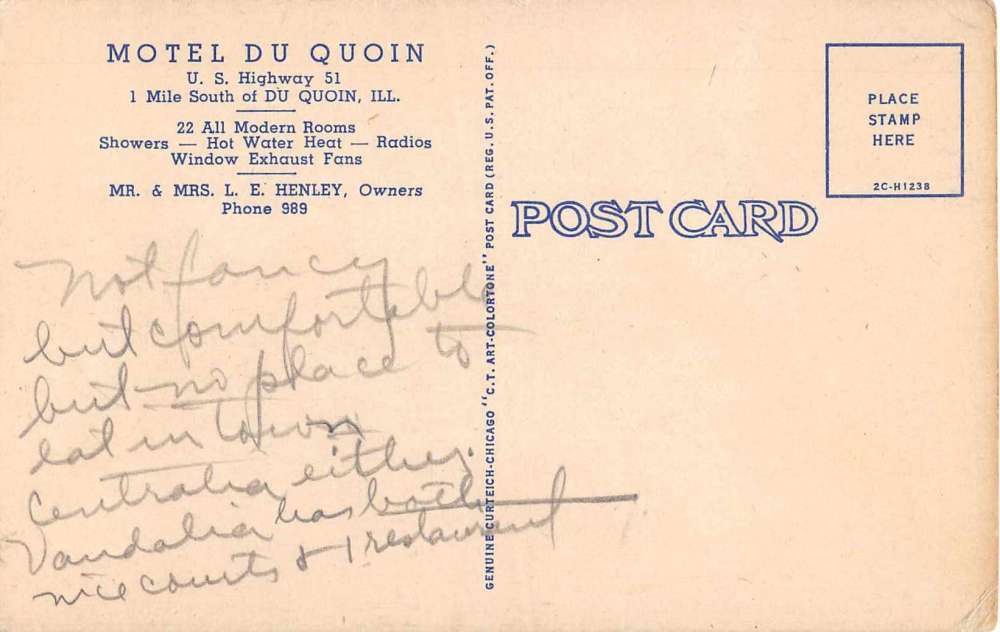 MOTEL DU QUOIN
U. S. Highway 51
1 Mile South of DU QUOIN, ILL.
22 All Modern Rooms
Showers — Hot Water Heat — Radios
Window Exhaust Fans
MR. & MRS. L. E. HENLEY, Owners
Phone 989
Not fancy
but comfortable
but no place to
eat in town
Centralia either.
Vandalia has both
nice courts & 1 restaurant
GENUINE CURTEICH-CHICAGO "C.T. ART-COLORTONE" POST CARD (REG. U.S. PAT. OFF.)
POST CARD
PLACE
STAMP
HERE
2C-H1238